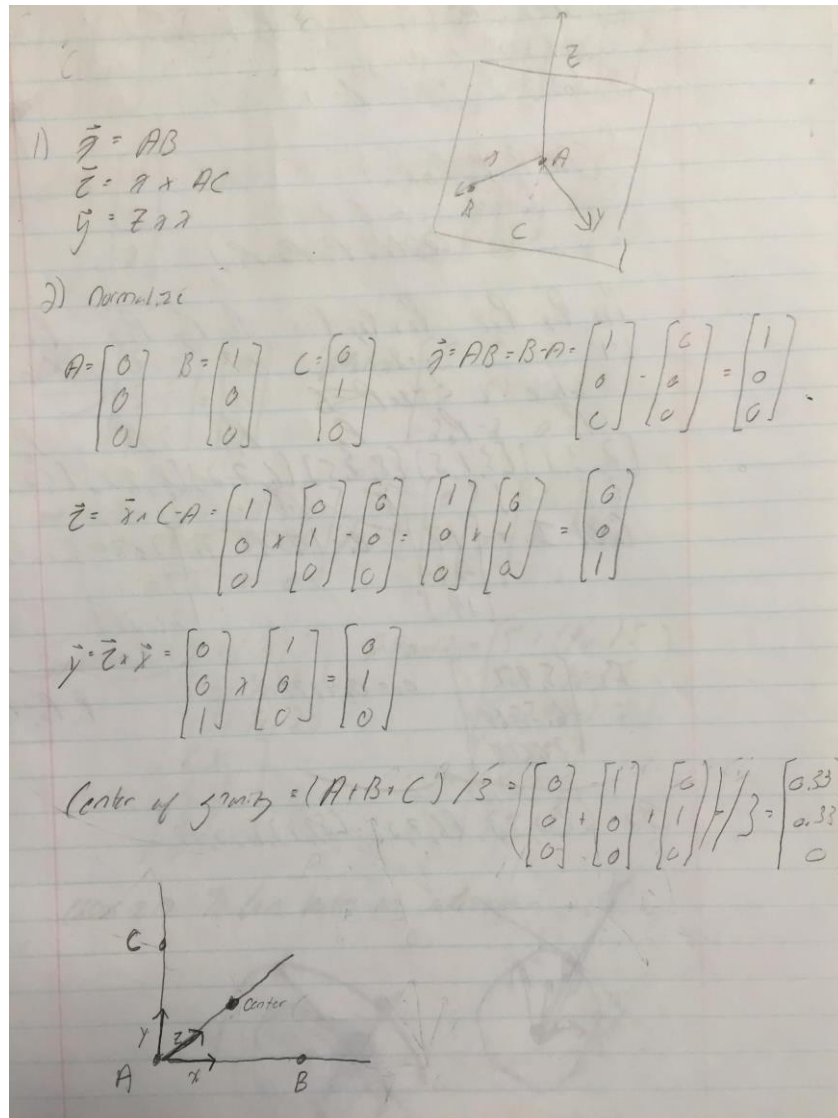 Z
1) x⃗ = AB
x A
z⃗ = x × AC
B
y⃗ = z × x
C Y
2) Normalize
A = [0 0 0] B = [1 0 0] C = [0 1 0] x⃗ = AB = B-A = [1 0 0] - [0 0 0] = [1 0 0]
z⃗ = x⃗ × C-A = [1 0 0] × [0 1 0] - [0 0 0] = [1 0 0] × [0 1 0] = [0 0 1]
y⃗ = z⃗ × x⃗ = [0 0 1] × [1 0 0] = [0 1 0]
Center of gravity = (A+B+C) / 3 = ([0 0 0] + [1 0 0] + [0 1 0]) / 3 = [0.33 0.33 0]
C
Center
Y Z
A x B